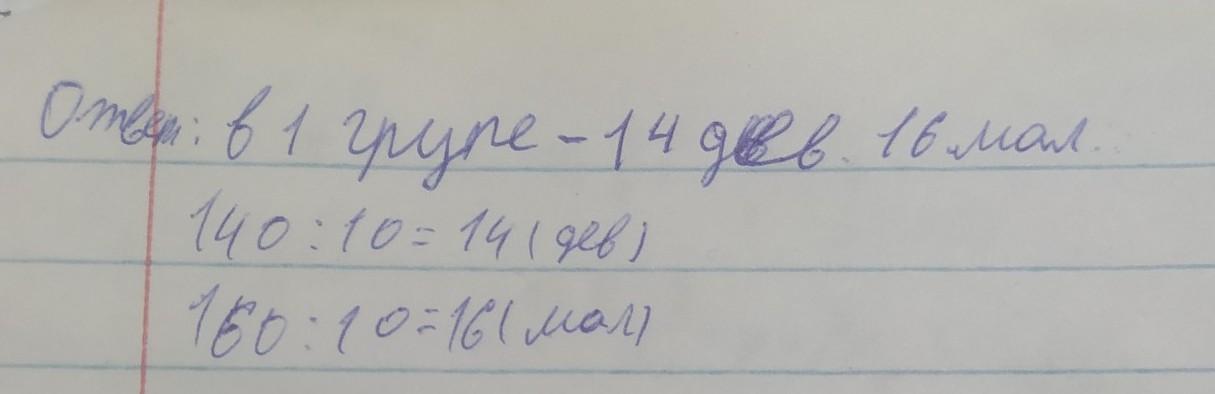 Ответ: в 1 групе - 14 дев. 16 мал.
140 : 10 = 14 (дев)
160 : 10 = 16 (мал)